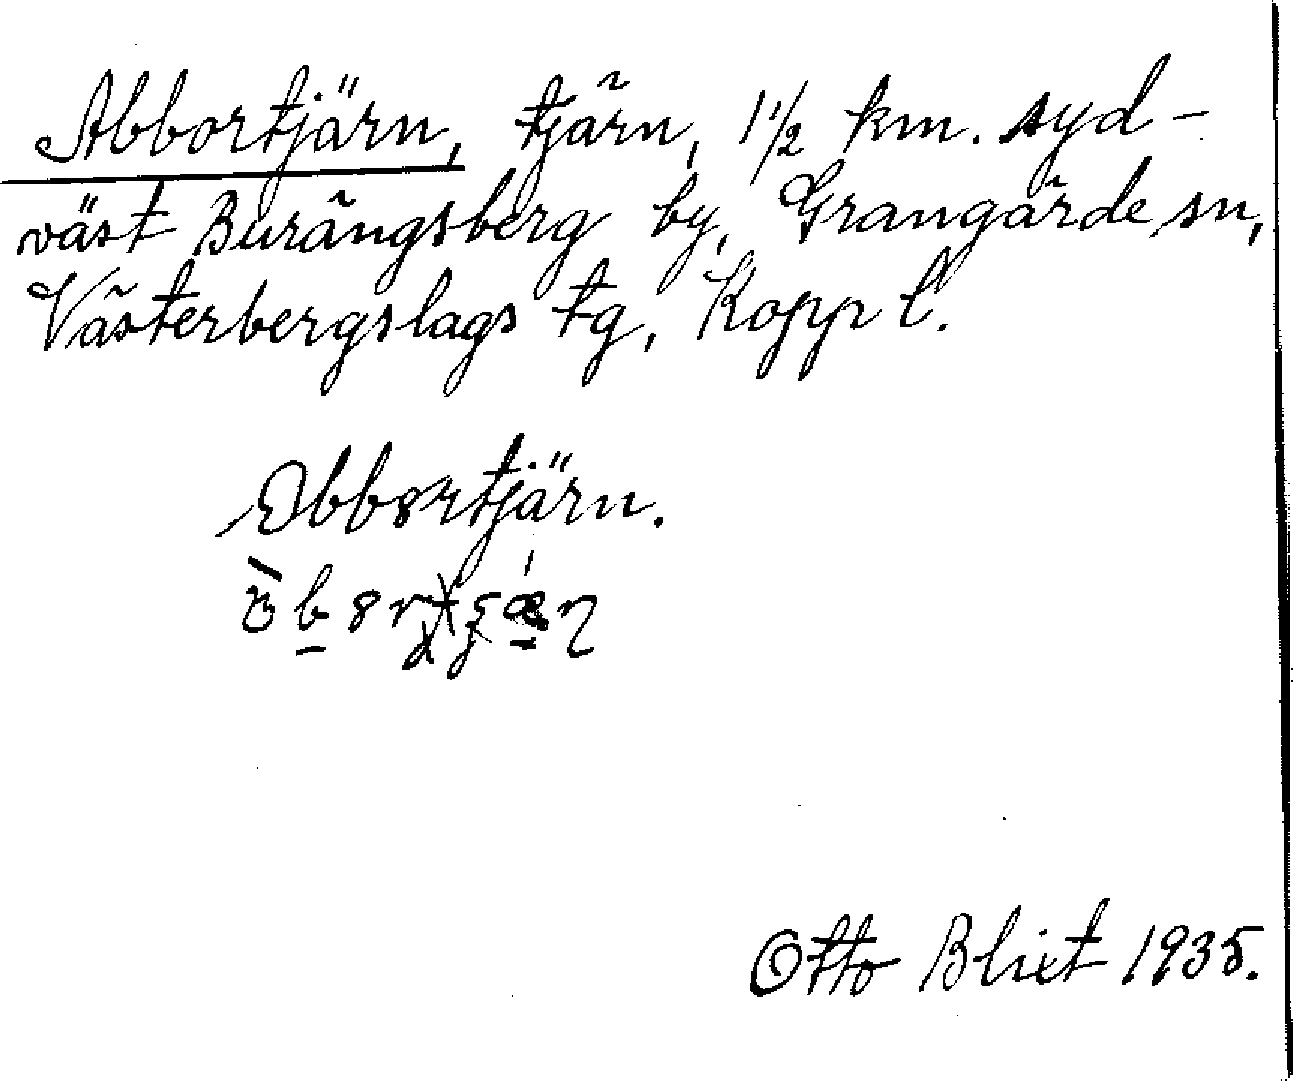 Abbortjärn, tjärn, 1 1/2 km. syd-
väst Burängsberg by, Grangärde sn,
Västerbergslags tg, Kopp l.
Abbortjärn.
Otto Blixt 1935.